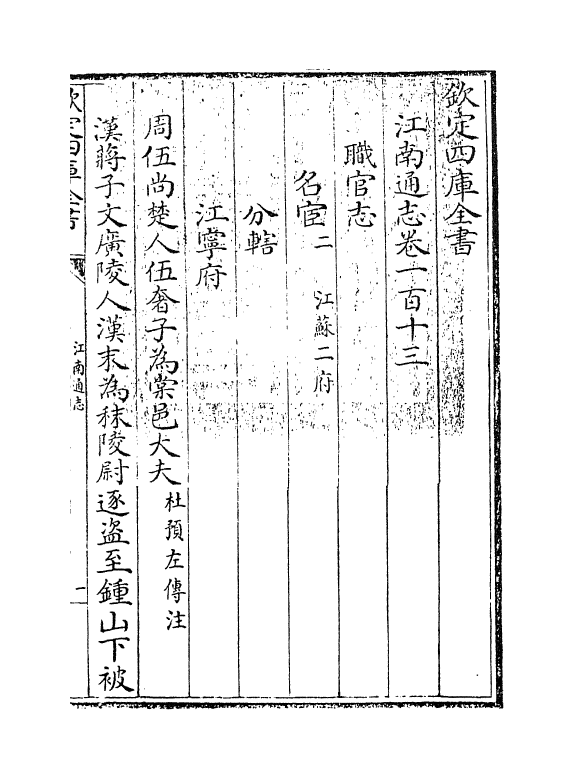 欽定四庫全書
江南通志卷一百十三
職官志
名宦二 江蘇二府
分轄
江寧府
周伍尚楚人伍奢子為棠邑大夫杜預左傳注
漢蔣子文廣陵人漢末為秣陵尉逐盜至鍾山下被
欽定四庫全書
江南通志